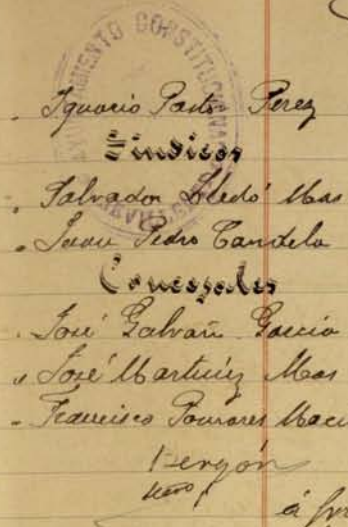 AYUNTAMIENTO CONSTITUCIONAL
" Ignacio Pastor Perez
Sindicos
" Salvador Lledó Mas
" Juan Pedro Candela
Concejales
" José Galvañ García
" José Martinez Mas
" Francisco Pomares Maciá
á